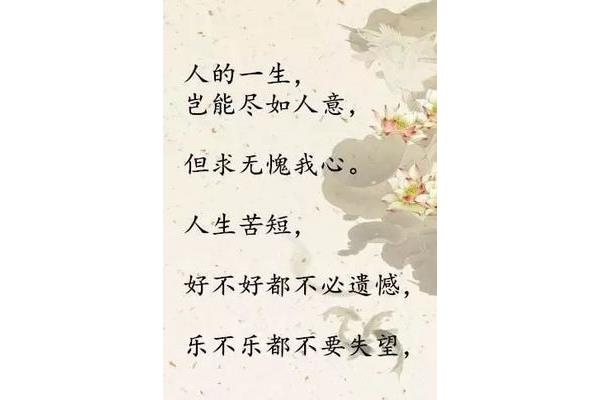 人的一生，
岂能尽如人意，
但求无愧我心。
人生苦短，
好不好都不必遗憾，
乐不乐都不要失望，